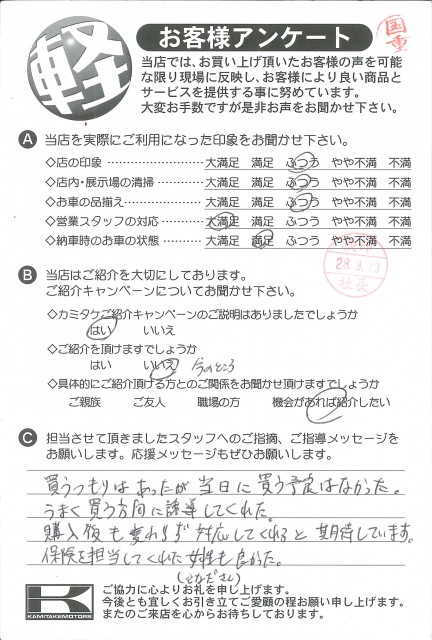 軽
お客様アンケート
国重
当店では、お買い上げ頂いたお客様の声を可能
な限り現場に反映し、お客様により良い商品と
サービスを提供する事に努めています。
大変お手数ですが是非お声をお聞かせ下さい。
A 当店を実際にご利用になった印象をお聞かせ下さい。
◇店の印象 …………………… 大満足 満足 ふつう やや不満 不満
◇店内・展示場の清掃 ………… 大満足 満足 ふつう やや不満 不満
◇お車の品揃え ……………… 大満足 満足 ふつう やや不満 不満
◇営業スタッフの対応 ………… 大満足 満足 ふつう やや不満 不満
◇納車時のお車の状態 ………… 大満足 満足 ふつう やや不満 不満
28.9.
社長
B 当店はご紹介を大切にしてあります。
ご紹介キャンペーンについてお聞かせ下さい。
◇カミタケご紹介キャンペーンのご説明はありましたでしょうか
はい いいえ
◇ご紹介を頂けますでしょうか
はい いいえ 今のところ
◇具体的にご紹介頂ける方とのご関係をお聞かせ頂けますでしょうか
ご親族 ご友人 職場の方 機会があれば紹介したい
C 担当させて頂きましたスタッフへのご指摘、ご指導メッセージを
お願いします。応援メッセージもぜひお願します。
買うつもりはあったが当日に買う予定はなかった。
うまく買う方向に誘導してくれた。
購入後も変わらず対応してくれると期待しています。
保険を担当してくれた女性も良かった。
K
KAMITAKEMOTORS
ご協力に心よりお礼を申し上げます。
今後とも宜しくお引き立てご愛顧の程お願い申し上げます。
またのご来店を心からお待ちしております。